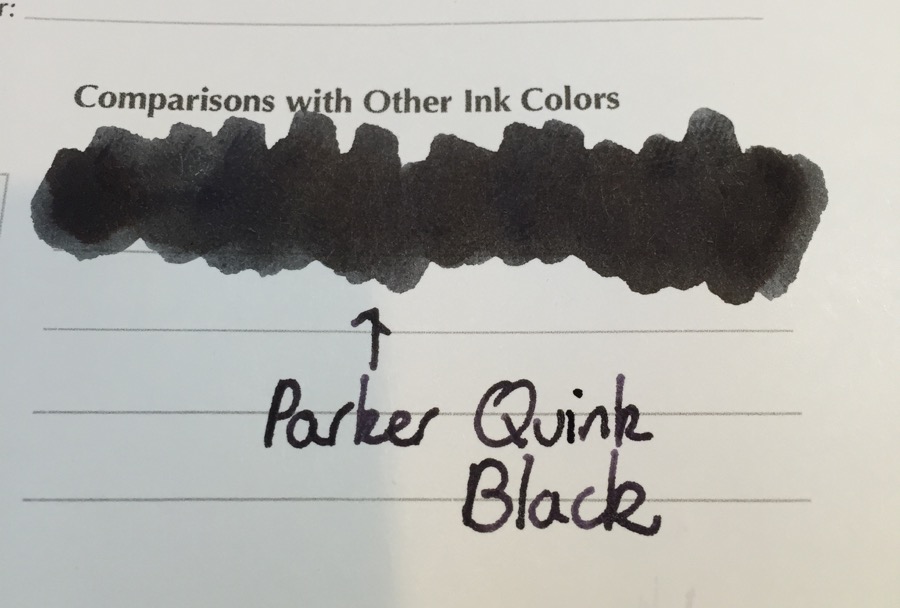 r:
Comparisons with Other Ink Colors
Parker Quink
Black